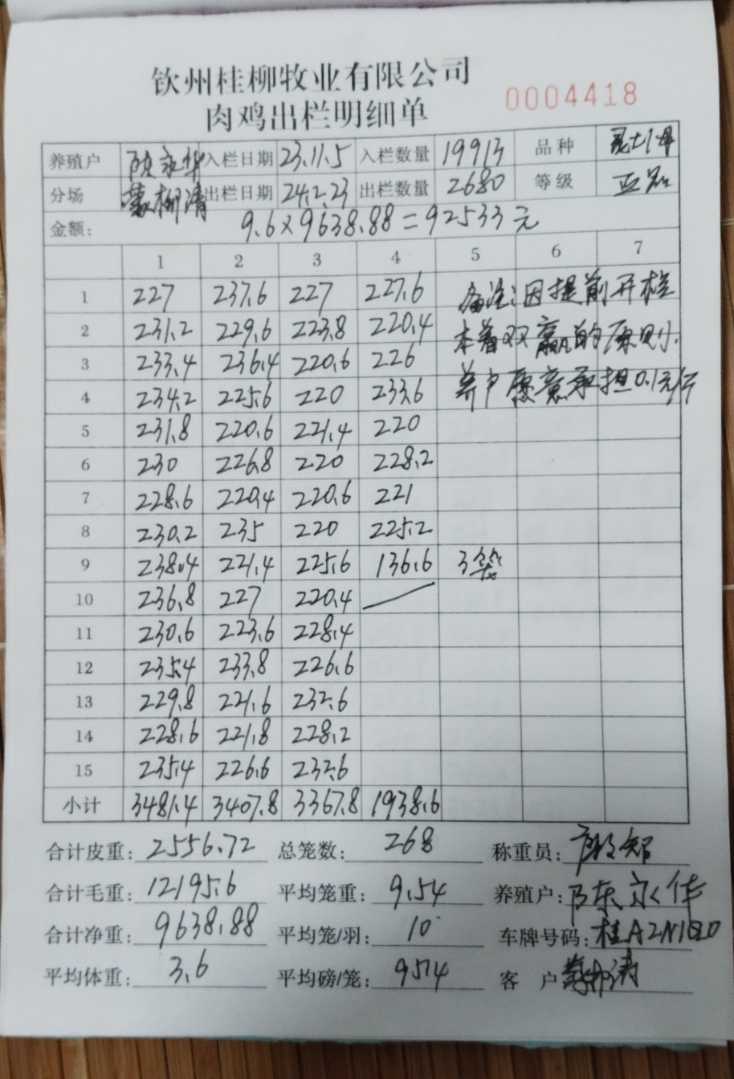 钦州桂柳牧业有限公司
肉鸡出栏明细单 0004418
养殖户 陈永华 入栏日期 23.11.5 入栏数量 19913 品种
分场 出栏日期 24.2.23 出栏数量 2680 等级
金额: 9.6×9638.88=92533元
1 2 3 4 5 6 7
1 227 237.6 227 227.6 备注:因提前开栏
2 231.2 229.6 223.8 220.4 本着双赢的原则.
3 233.4 236.4 220.6 226 养户愿意承担0.1元/斤
4 234.2 225.6 220 233.6
5 231.8 220.6 221.4 220
6 230 226.8 220 228.2
7 228.6 220.4 220.6 221
8 230.2 235 220 225.2
9 238.4 221.4 225.6 136.6 3笼
10 236.8 227 220.4
11 230.6 223.6 228.4
12 235.4 233.8 226.6
13 229.8 221.6 232.6
14 228.6 221.8 228.2
15 235.4 226.6 232.6
小计 3481.4 3407.8 3367.8 1938.6
合计皮重: 2556.72 总笼数: 268 称重员:
合计毛重: 12195.6 平均笼重: 9.54 养殖户: 陈永华
合计净重: 9638.88 平均笼/羽: 10 车牌号码:
平均体重: 3.6 平均磅/笼: 9.54 客户